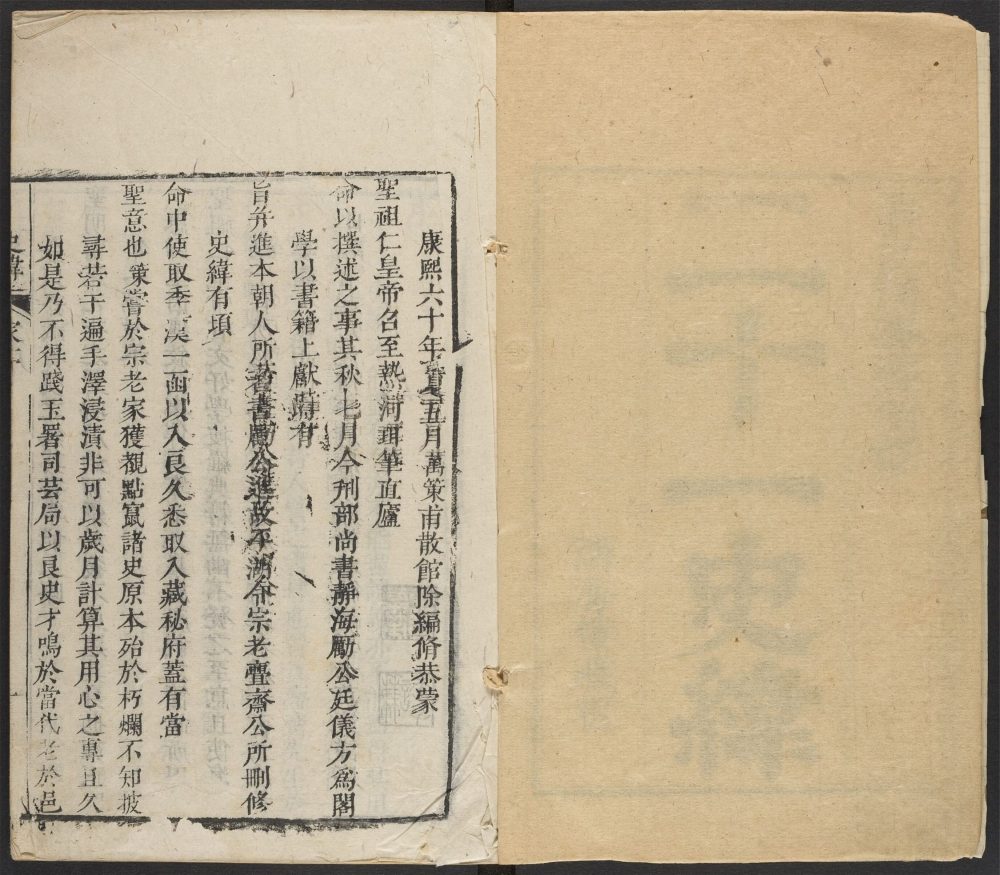 康熙六十年夏五月萬策甫散館除編脩恭蒙
聖祖仁皇帝召至熱河珥筆直廬
命以撰述之事其秋七月今刑部尚書靜海勵公廷儀方為閣
學以書籍上獻時有
旨并進本朝人所著書勵公進故平湖令宗老疊齋公所刪修
史緯有頃
命中使取季漢一函以入良久悉取入藏秘府蓋有當
聖意也策嘗於宗老家獲觀點竄諸史原本殆於朽爛不知披
尋若干遍手澤浸漬非可以歲月計算其用心之專且久
如是乃不得踐玉署司芸局以良史才鳴於當代老於邑
史緯